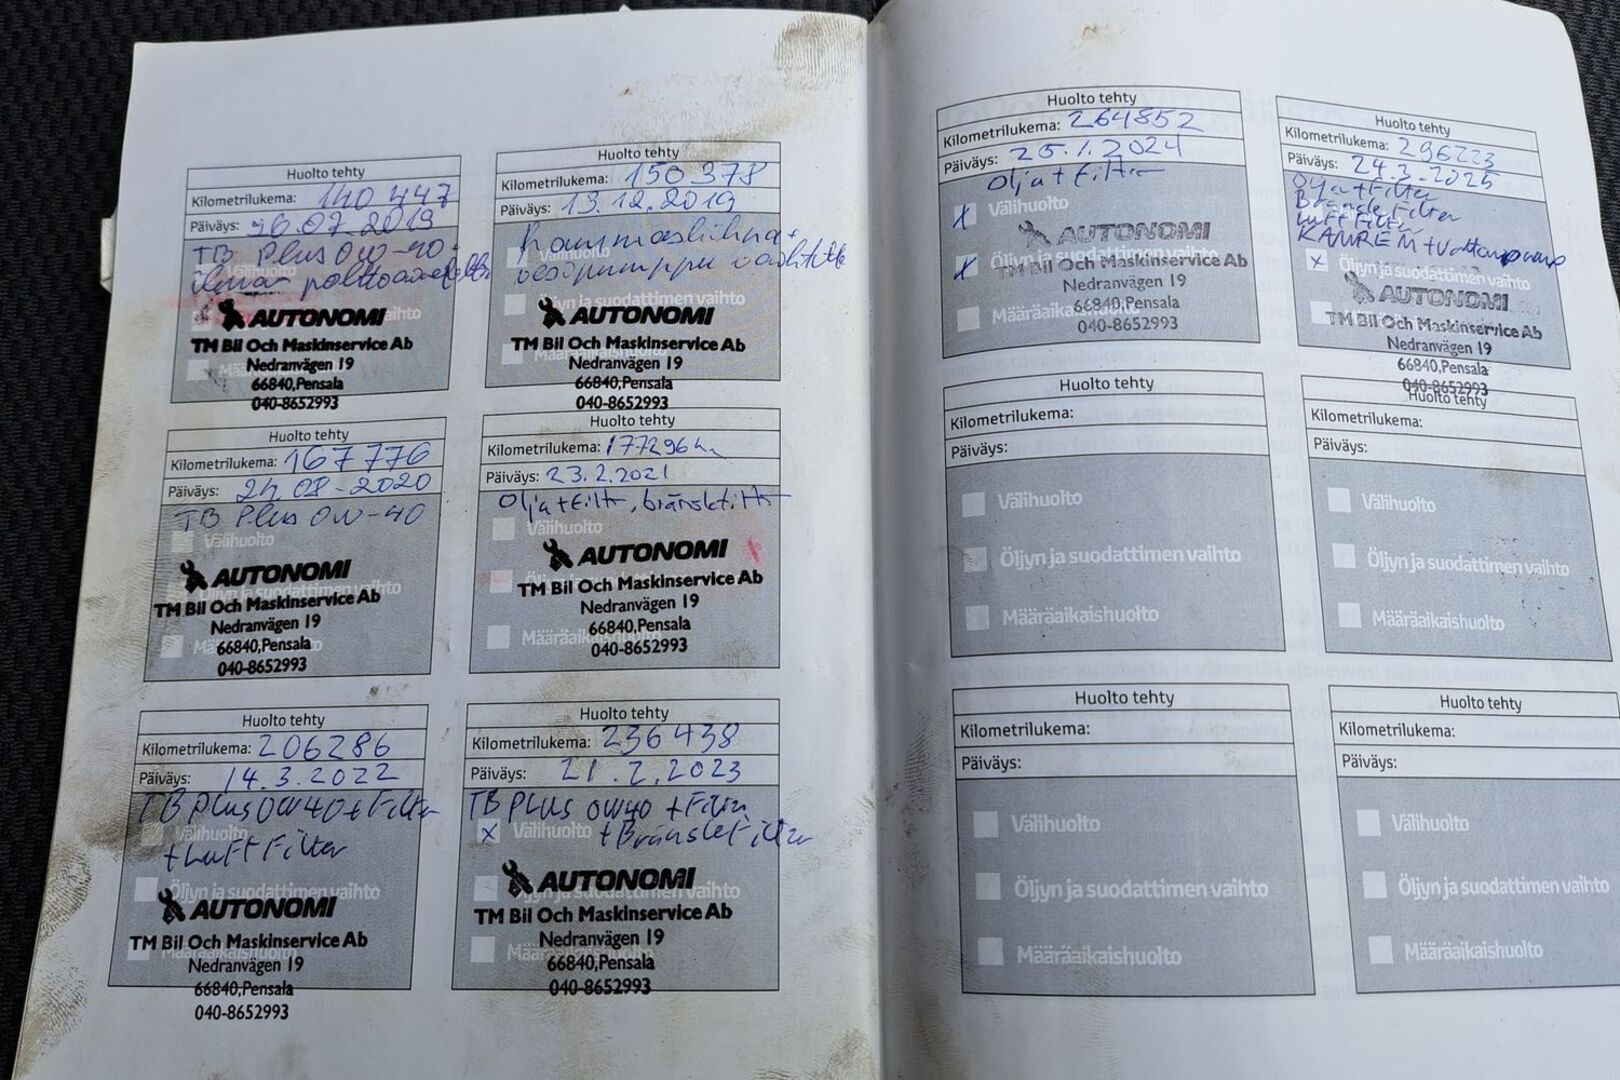 Huolto tehty
Kilometrilukema: 140 447
Päiväys: 16.07.2019
TB Plus 0W-40
ilma- polttoaine
Välihuolto
AUTONOMI
TM Bil Och Maskinservice Ab
Nedranvägen 19
66840,Pensala
040-8652993
Huolto tehty
Kilometrilukema: 150 378
Päiväys: 13.12.2019
hammashihna +
vesipumppu vaihdettu
Öljyn ja suodattimen vaihto
AUTONOMI
TM Bil Och Maskinservice Ab
Määräaikaishuolto
Nedranvägen 19
66840,Pensala
040-8652993
Huolto tehty
Kilometrilukema: 167 776
Päiväys: 24.08-2020
TB Plus 0W-40
Välihuolto
AUTONOMI
Öljyn ja suodattimen vaihto
TM Bil Och Maskinservice Ab
Nedranvägen 19
66840,Pensala
040-8652993
Huolto tehty
Kilometrilukema: 177296
Päiväys: 23.2.2021
Olja + Filtr, bränslefiltr
Välihuolto
AUTONOMI
TM Bil Och Maskinservice Ab
Nedranvägen 19
66840,Pensala
Määräaikaishuolto
040-8652993
Huolto tehty
Kilometrilukema: 206286
Päiväys: 14.3.2022
TB PLUS 0W40 + Filter
Välihuolto
+ Luft Filter
Öljyn ja suodattimen vaihto
AUTONOMI
TM Bil Och Maskinservice Ab
Nedranvägen 19
66840,Pensala
040-8652993
Huolto tehty
Kilometrilukema: 236 438
Päiväys: 21.2.2023
TB PLUS 0W40 + Filter
x Välihuolto + BränsleFilter
AUTONOMI
Öljyn ja suodattimen vaihto
TM Bil Och Maskinservice Ab
Nedranvägen 19
Määräaikaishuolto
66840,Pensala
040-8652993
Huolto tehty
Kilometrilukema: 264852
Päiväys: 25.1.2024
Olja + Filter
x Välihuolto
AUTONOMI
x Öljyn ja suodattimen vaihto
TM Bil Och Maskinservice Ab
Nedranvägen 19
66840,Pensala
Määräaikaishuolto
040-8652993
Huolto tehty
Kilometrilukema: 296223
Päiväys: 24.3.2025
Olja + Filter
Bränsle Filter
Luft Filter
KAMREM + Vattenpump
x Öljyn ja suodattimen vaihto
AUTONOMI
TM Bil Och Maskinservice Ab
Nedranvägen 19
66840,Pensala
040-8652993
Huolto tehty
Kilometrilukema:
Päiväys:
Välihuolto
Öljyn ja suodattimen vaihto
Määräaikaishuolto
Huolto tehty
Kilometrilukema:
Päiväys:
Välihuolto
Öljyn ja suodattimen vaihto
Määräaikaishuolto
Huolto tehty
Kilometrilukema:
Päiväys:
Välihuolto
Öljyn ja suodattimen vaihto
Määräaikaishuolto
Huolto tehty
Kilometrilukema:
Päiväys:
Välihuolto
Öljyn ja suodattimen vaihto
Määräaikaishuolto